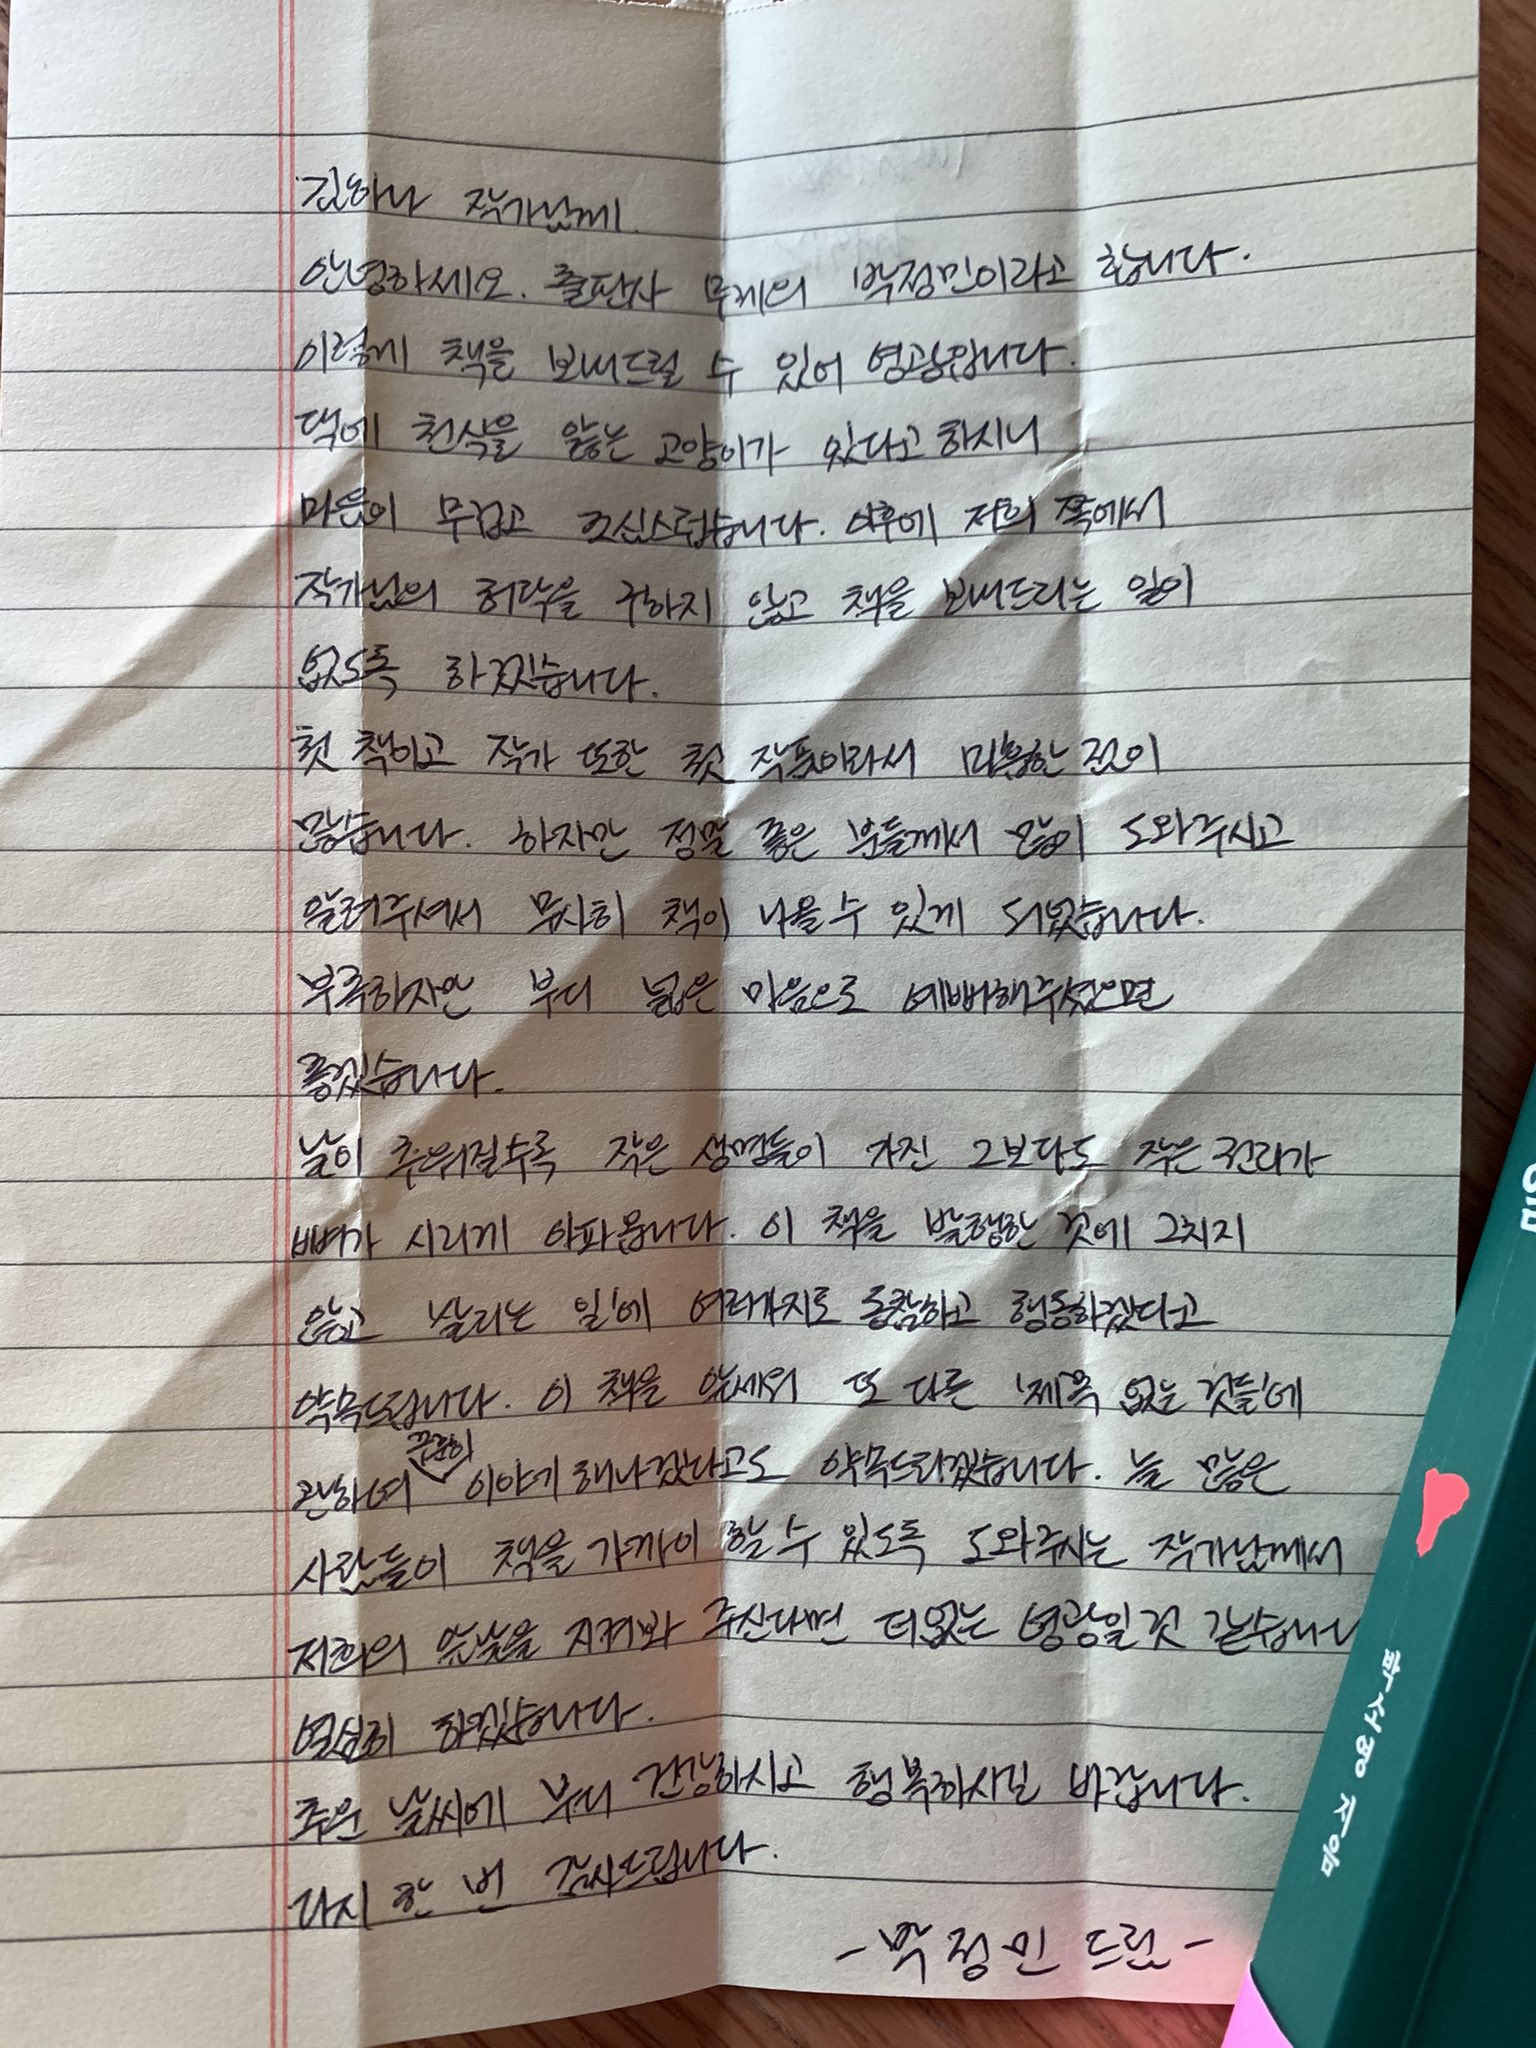 김하나 작가님께.
안녕하세요. 출판사 무제의 박정민이라고 합니다.
이렇게 책을 보내드릴 수 있어 영광입니다.
댁에 천식을 앓는 고양이가 있다고 하시니
마음이 무겁고 조심스럽습니다. 이후에 저희 쪽에서
작가님의 허락을 구하지 않고 책을 보내드리는 일이
없도록 하겠습니다.
첫 책이고 작가 또한 첫 작품이라서 미흡한 점이
많습니다. 하지만 정말 좋은 분들께서 많이 도와주시고
알려주셔서 무사히 책이 나올 수 있게 되었습니다.
부족하지만 부디 넓은 마음으로 예뻐해주셨으면
좋겠습니다.
날이 추워질수록 작은 생명들이 가진 그보다도 작은 권리가
뼈가 시리게 아파옵니다. 이 책을 발행한 것에 그치지
않고 '살리는 일'에 여러가지로 동참하고 행동하겠다고
약속드립니다. 이 책을 앞세워 또 다른 '제목 없는 것들'에
관하여 꾸준히 이야기 해나가겠다고도 약속드리겠습니다. 늘 많은
사람들이 책을 가까이 할 수 있도록 도와주시는 작가님께서
저희의 앞날을 지켜봐 주신다면 더없는 영광일 것 같습니다
열심히 하겠습니다.
추운 날씨에 부디 건강하시고 행복하시길 바랍니다.
다시 한 번 감사드립니다.
- 박정민 드림 -
박소영 지음